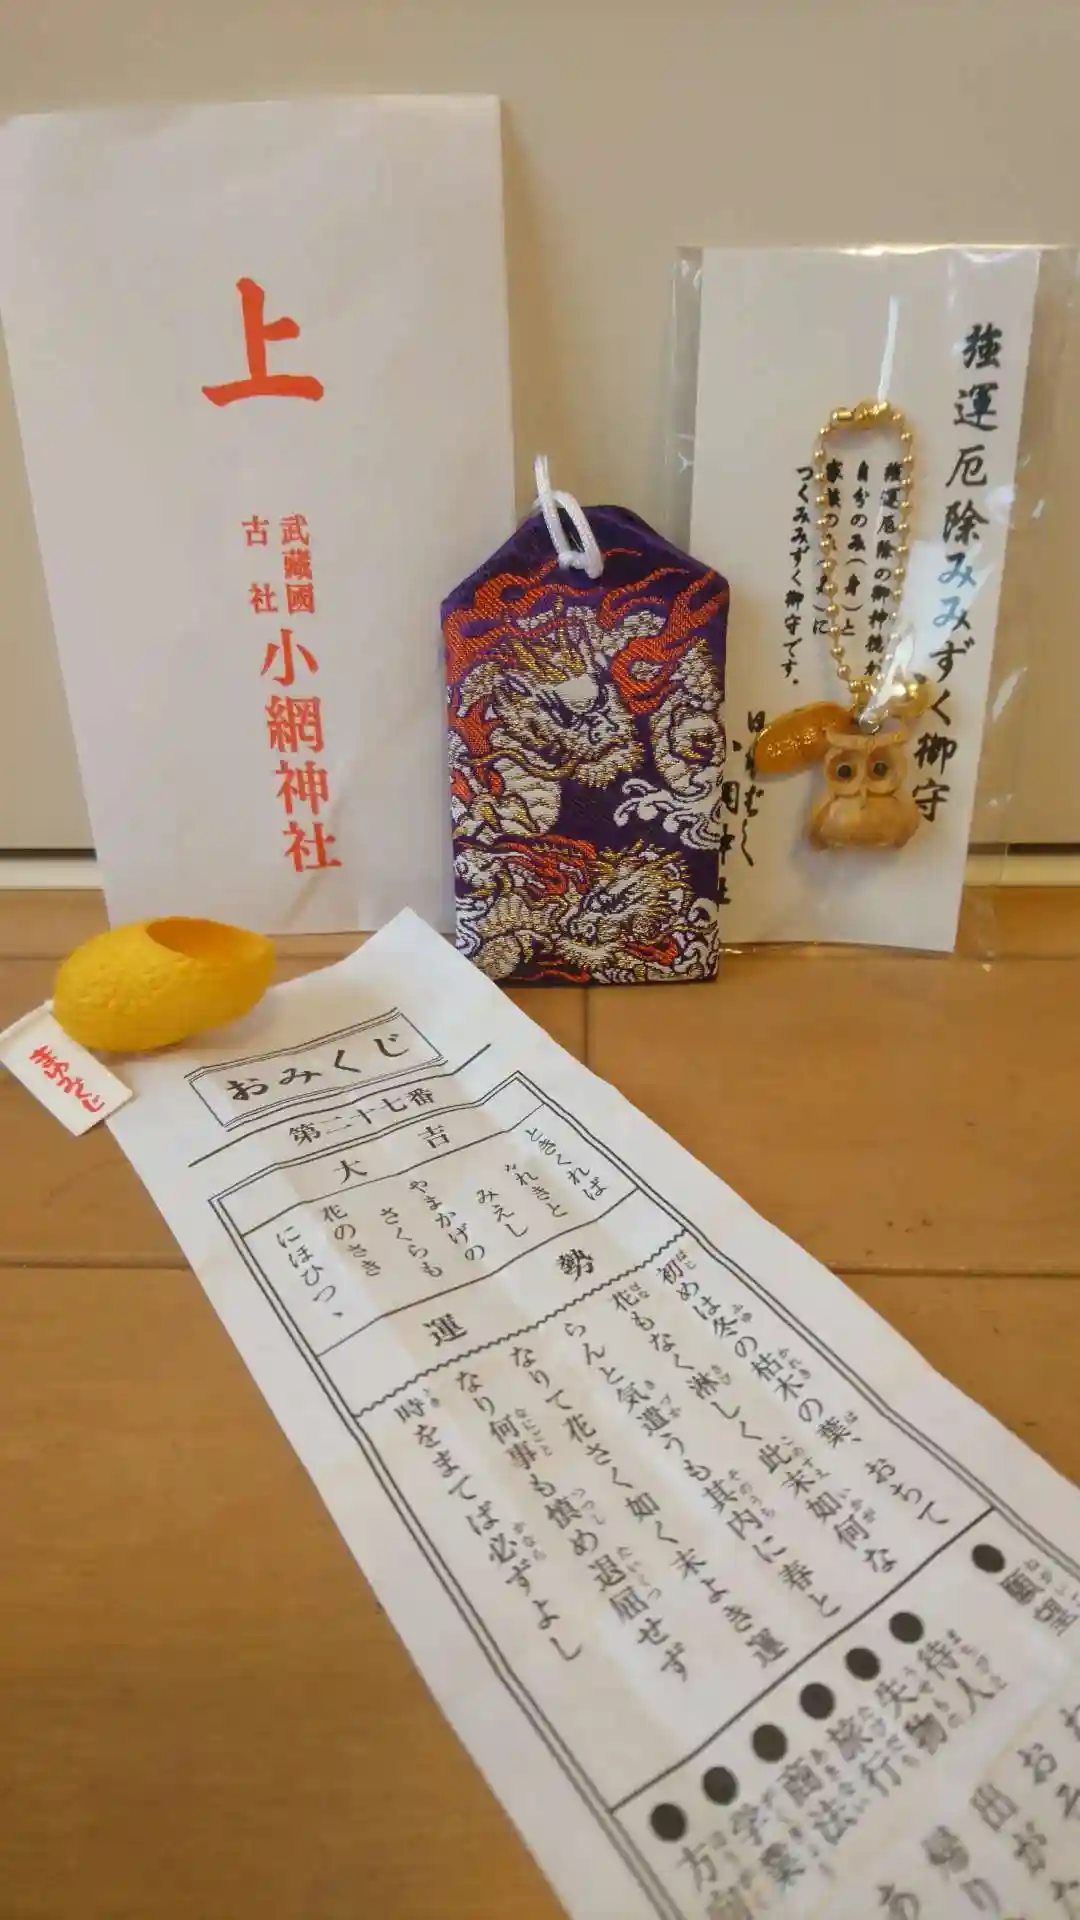 上
武蔵國
古社
小網神社
強運厄除みみずく御守
強運厄除の御神徳が
自分のみ(身)と
家族のみ(身)に
つくみみずく御守です。
まゆみくじ
おみくじ
第二十七番
大吉
ときくれば
かれきと
みえし
やまかげの
さくらも
花のさき
にほひつゝ
運勢
初めは冬の枯木の葉、おちて
花もなく淋しく此末如何な
らんと気遣うも其内に春と
なりて花さく如く末よき運
なり何事も慎め退屈せず
時をまてば必ずよし
●願望
●待人
●失物
●旅行
●商法
●学業
●方向